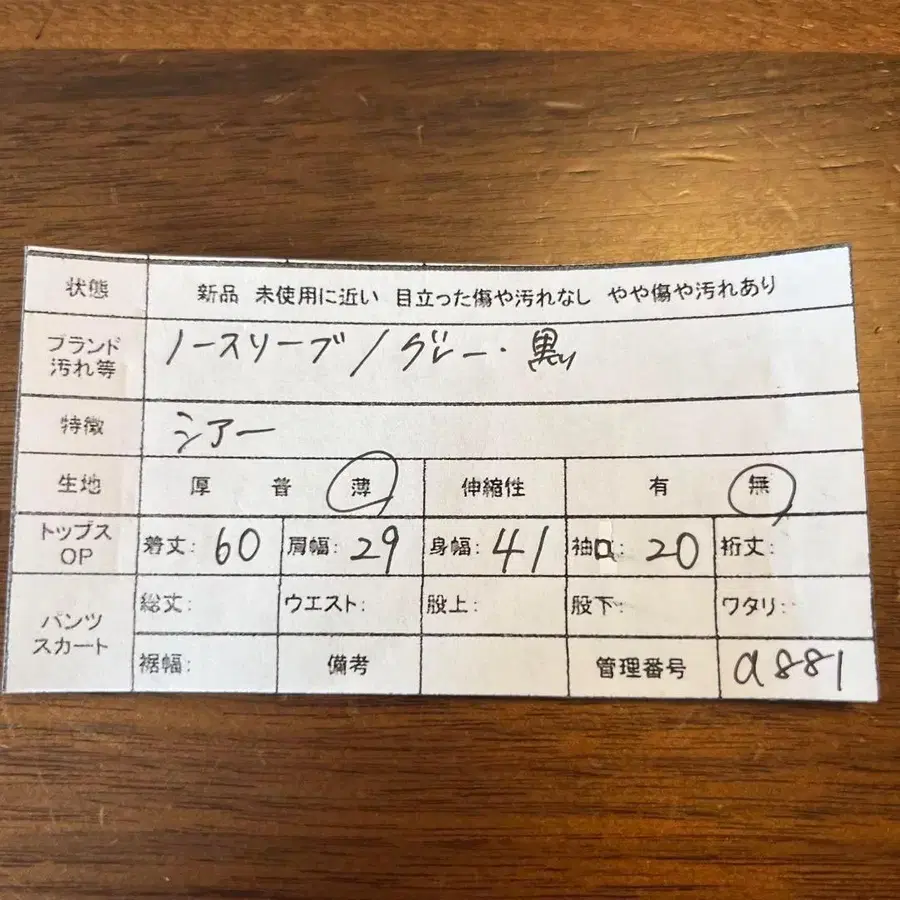 状態 新品 未使用に近い 目立った傷や汚れなし やや傷や汚れあり
ブランド 汚れ等 ノースリーブ/グレー・黒
特徴 シアー
生地 厚 普 薄 伸縮性 有 無
トップス OP 着丈: 60 肩幅: 29 身幅: 41 袖口: 20 裄丈:
パンツ スカート 総丈: ウエスト: 股上: 股下: ワタリ:
裾幅: 備考 管理番号 a881